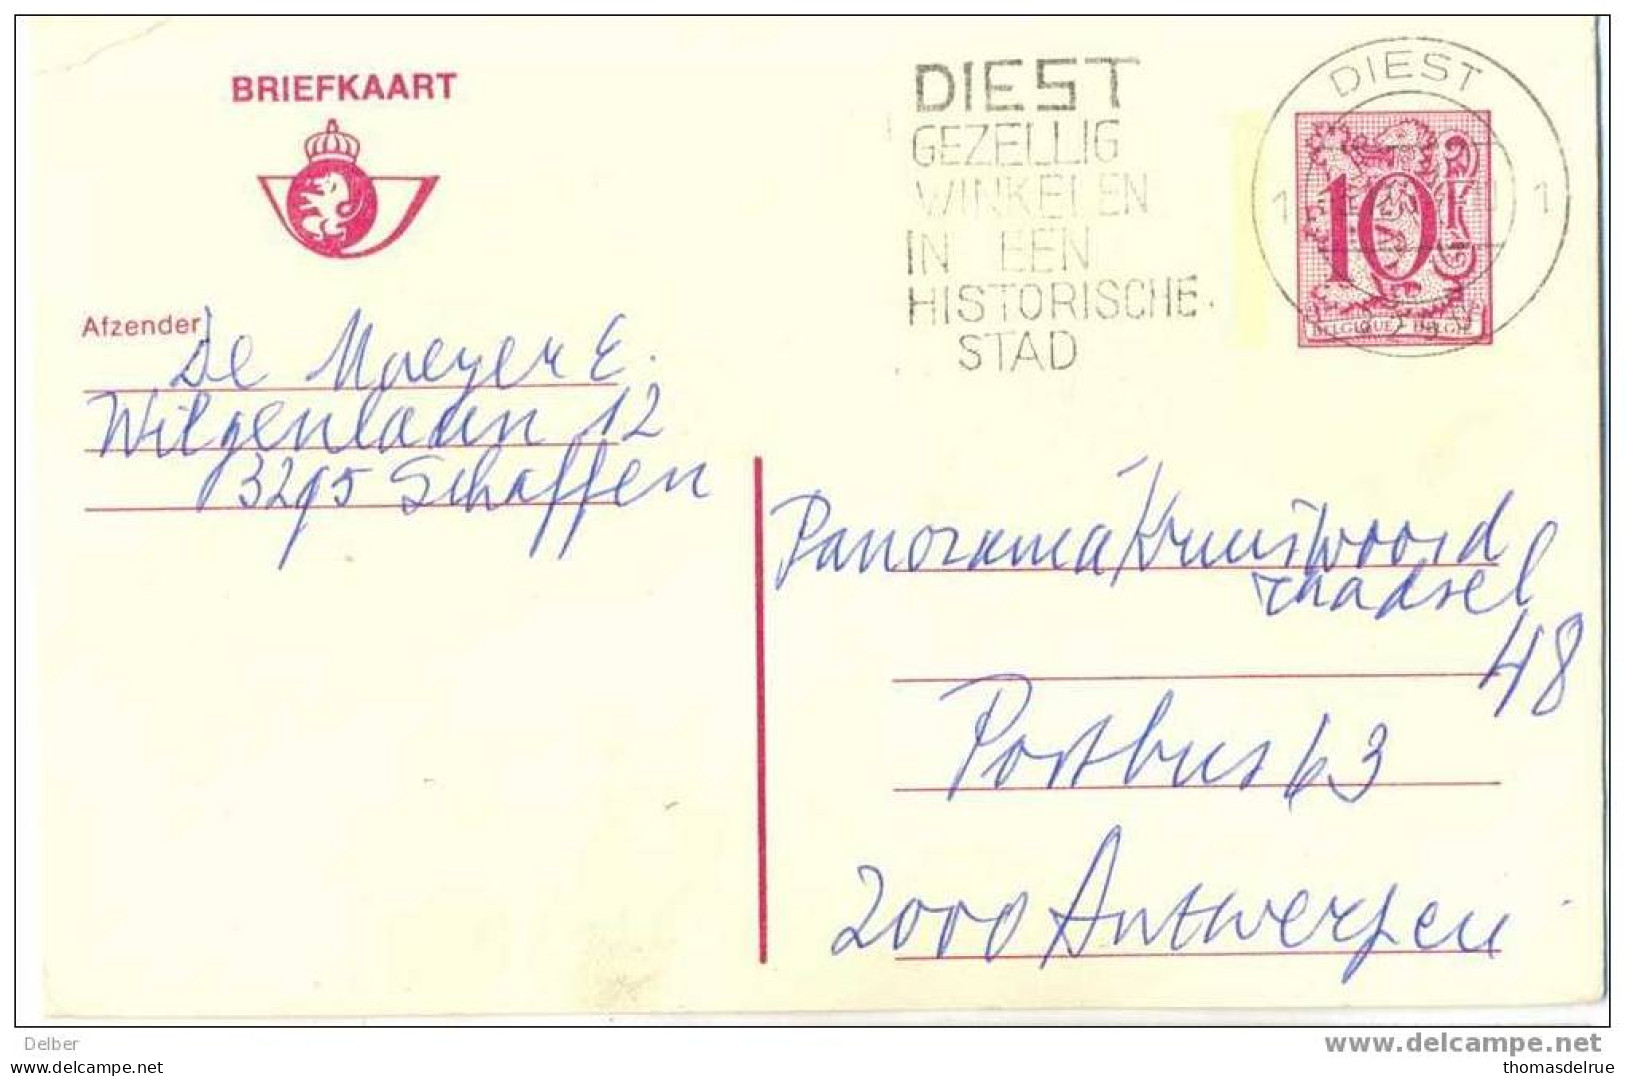 BRIEFKAART
DIEST
GEZELLIG
WINKELEN
IN EEN
HISTORISCHE
STAD
DIEST
1 1
10F
BELGIQUE BELGIË
Afzender
De Moeyer E.
Wilgenlaan 12
3295 Schaffen
Panorama/Kruiswoord
raadsel
48
Postbus 63
2000 Antwerpen
Delber
www.delcampe.net
www.delcampe.net
thomasdelrue